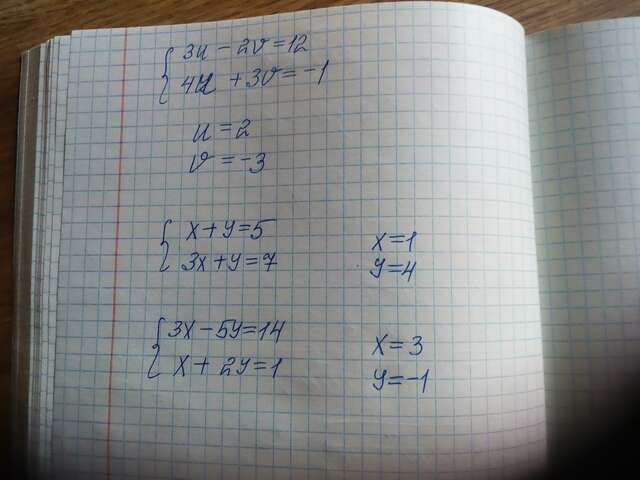 3u - 2v = 12
4u + 3v = -1
u = 2
v = -3
x + y = 5
3x + y = 7
x = 1
y = 4
3x - 5y = 14
x + 2y = 1
x = 3
y = -1